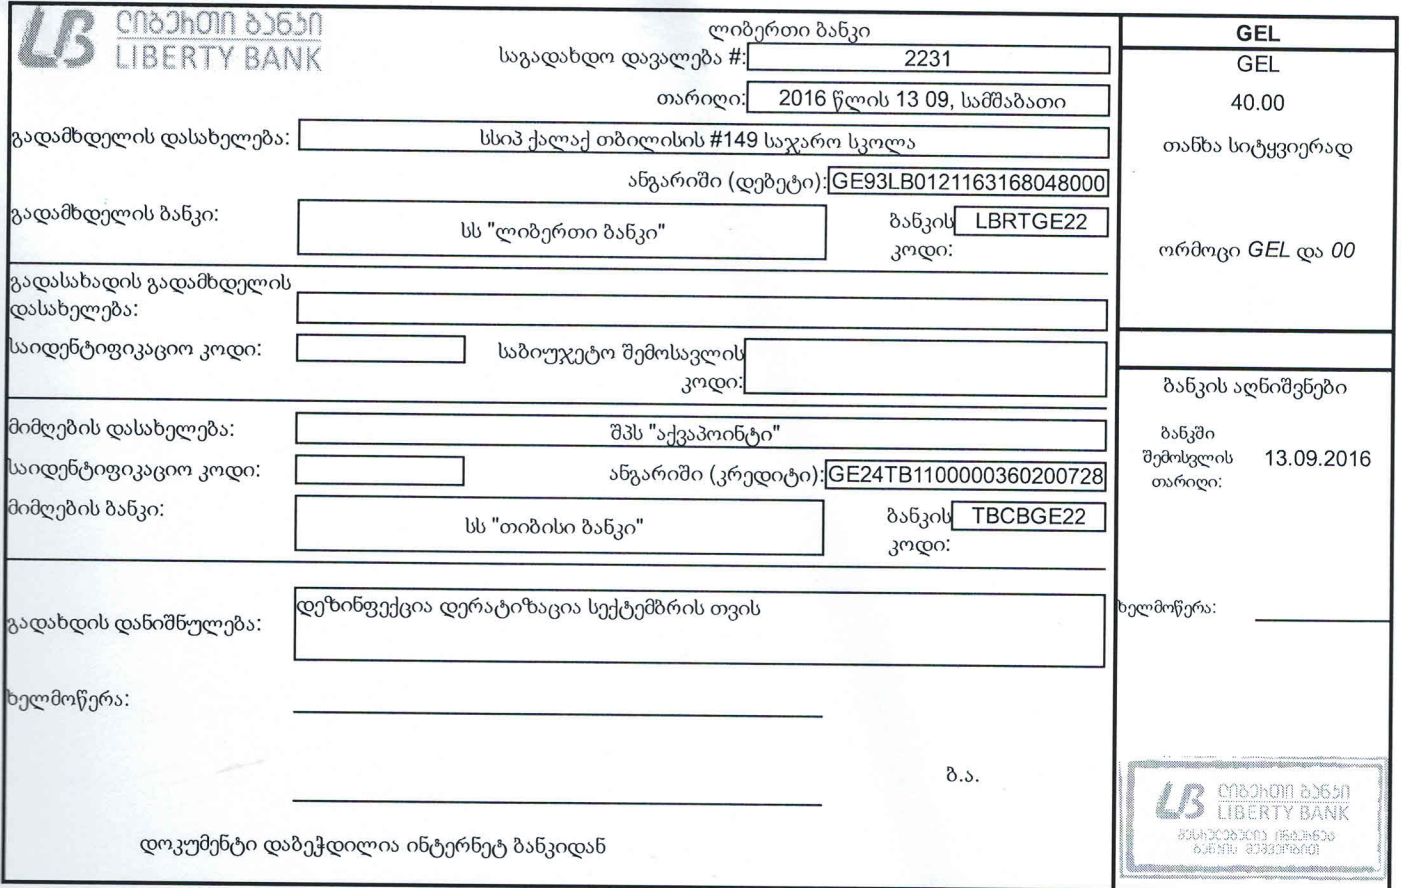 ლიბერთი ბანკი
LIBERTY BANK
ლიბერთი ბანკი
საგადახდო დავალება #: 2231
თარიღი: 2016 წლის 13 09, სამშაბათი
გადამხდელის დასახელება: სსიპ ქალაქ თბილისის #149 საჯარო სკოლა
ანგარიში (დებეტი): GE93LB0121163168048000
გადამხდელის ბანკი: სს "ლიბერთი ბანკი" ბანკის კოდი: LBRTGE22
გადასახადის გადამხდელის
დასახელება:
საიდენტიფიკაციო კოდი: საბიუჯეტო შემოსავლის
კოდი:
მიმღების დასახელება: შპს "აქვაპოინტი"
საიდენტიფიკაციო კოდი: ანგარიში (კრედიტი): GE24TB1100000360200728
მიმღების ბანკი: სს "თიბისი ბანკი" ბანკის კოდი: TBCBGE22
გადახდის დანიშნულება: დეზინფექცია დერატიზაცია სექტემბრის თვის
ხელმოწერა:
ბ.ა.
დოკუმენტი დაბეჭდილია ინტერნეტ ბანკიდან
GEL
GEL
40.00
თანხა სიტყვიერად
ორმოცი GEL და 00
ბანკის აღნიშვნები
ბანკში
შემოსვლის 13.09.2016
თარიღი:
ხელმოწერა:
ლიბერთი ბანკი
LIBERTY BANK
შესრულებულია ინტერნეტ
ბანკის მეშვეობით